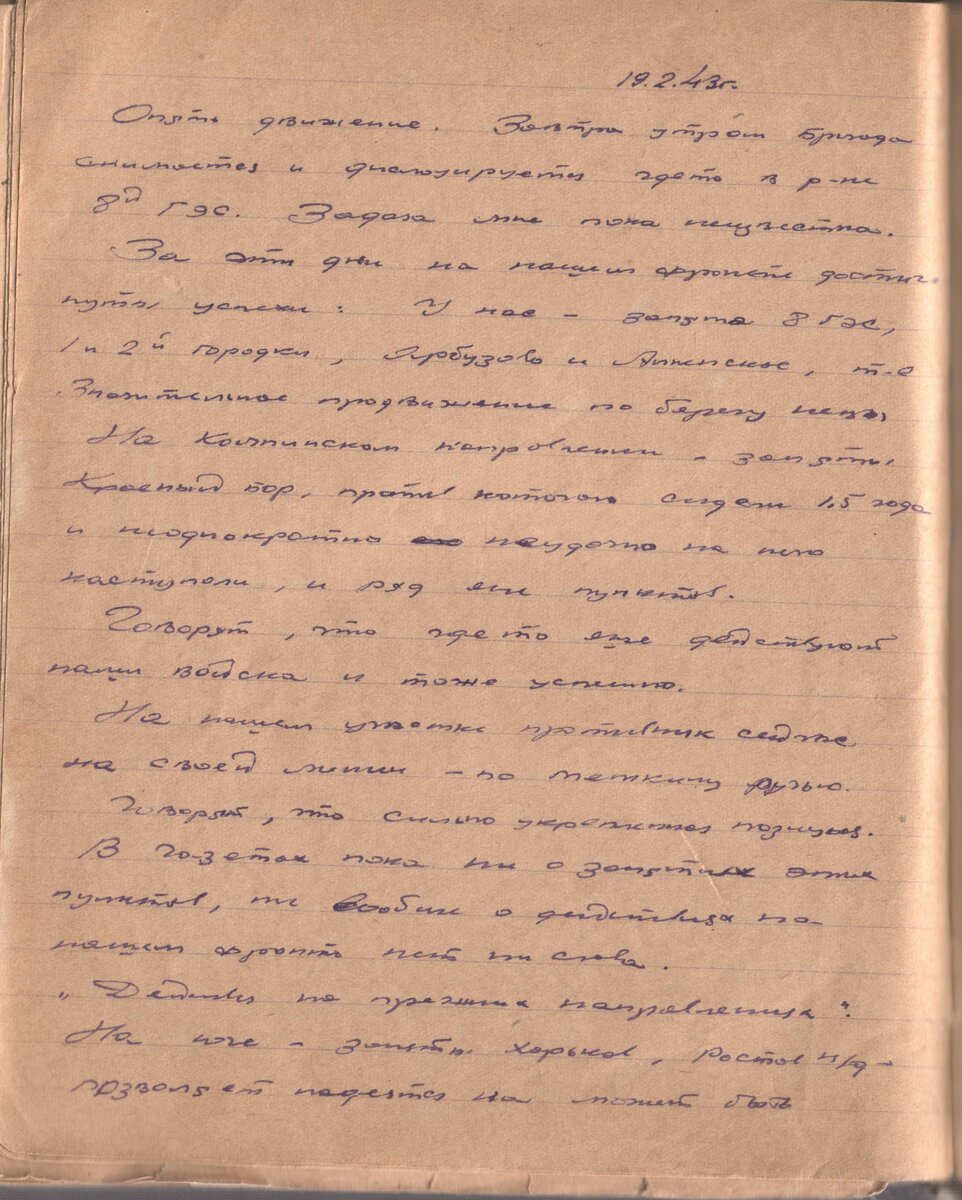 19.2.43г.
Опять движение. Завтра утром бригада
снимается и дислоцируется гдето в р-не
8й ГЭС. Задача мне пока неизвестна.
За эти дни на нашем фронте достиг-
нуты успехи: У нас – занята 8 ГЭС,
1 и 2й городки, Арбузово и Анненское, т.е
значительное продвижение по берегу Невы
На Колпинском направлении – заняты
Красный бор, против которого сидели 1,5 года
и неоднократно неудачно на него
наступали, и ряд еще пунктов.
Говорят, что где то еще действуют
наши войска и тоже успешно.
На нашем участке противник сидит
на своей линии – по
Говорят, что сильно укрепился позиция.
В га-зетах пока ни о занятиях этих
пунктов, ни вообще о действиях на
нашем фронте нет ни слова.
„Действия на прежних направлениях".
На юге – заняты Харьков, Ростов н/Д –
позволяет надеятся на может быть